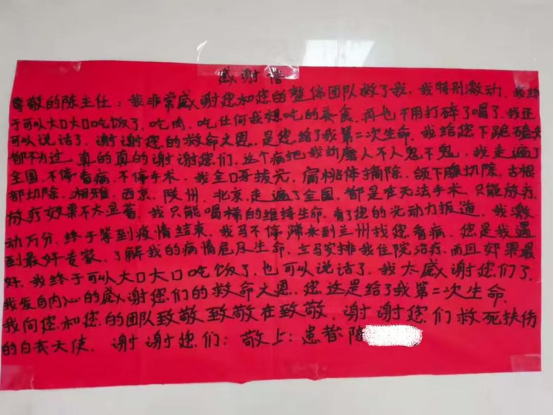 感谢信
尊敬的陈主任：我非常感谢您和您的整体团队救了我，我特别激动，我终
于可以大口大口吃饭了，吃肉，吃任何我想吃的美食，再也不用打碎了喝了，我还
可以说话了，谢谢您的救命之恩，是您给了我第二次生命，我给您下跪磕头
都不为过，真的真的谢谢您们，这个病把我折磨人不人鬼不鬼，我走遍了
全国，不停看病，不停手术，我全口牙拔光，扁桃体摘除，颌下腺切除，舌根
部切除，湘雅，西京，郑州，北京，走遍了全国，都是在无法手术，只能放疗，
放疗效果不大显著，我只能喝稀的维持生命，看了您的光动力报道，我激
动万分，终于等到疫情结束，我马不停蹄来到兰州找您看病，您是我遇
到最好专家，了解我的病情危及生命，立马安排我住院治疗，而且效果最
好，我终于可以大口大口吃饭了，也可以说话了，我太感谢您们了，
我发自内心的感谢您们的救命之恩，您这是给了我第二次生命，
我向您和您的团队致敬致敬在致敬，谢谢您们救死扶伤
的白衣天使，谢谢您们：敬上：患者：陆